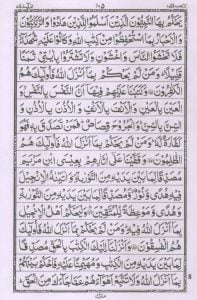 ١٠٥
يَحْكُمُ بِهَا النَّبِيُّوْنَ الَّذِيْنَ اَسْلَمُوْا لِلَّذِيْنَ هَادُوْا وَالرَّبّٰنِيُّوْنَ
وَالْاَحْبَارُ بِمَا اسْتُحْفِظُوْا مِنْ كِتٰبِ اللّٰهِ وَكَانُوْا عَلَيْهِ شُهَدَآءَ
فَلَا تَخْشَوُا النَّاسَ وَاخْشَوْنِ وَلَا تَشْتَرُوْا بِاٰيٰتِيْ ثَمَنًا
قَلِيْلًا وَمَنْ لَّمْ يَحْكُمْ بِمَآ اَنْزَلَ اللّٰهُ فَاُولٰٓئِكَ هُمُ
الْكٰفِرُوْنَ وَكَتَبْنَا عَلَيْهِمْ فِيْهَآ اَنَّ النَّفْسَ بِالنَّفْسِ وَ
الْعَيْنَ بِالْعَيْنِ وَالْاَنْفَ بِالْاَنْفِ وَالْاُذُنَ بِالْاُذُنِ وَ
السِّنَّ بِالسِّنِّ وَالْجُرُوْحَ قِصَاصٌ فَمَنْ تَصَدَّقَ بِهٖ فَهُوَ
كَفَّارَةٌ لَّهٗ وَمَنْ لَّمْ يَحْكُمْ بِمَآ اَنْزَلَ اللّٰهُ فَاُولٰٓئِكَ هُمُ
الظّٰلِمُوْنَ وَقَفَّيْنَا عَلٰٓى اٰثَارِهِمْ بِعِيْسَى ابْنِ مَرْيَمَ
مُصَدِّقًا لِّمَا بَيْنَ يَدَيْهِ مِنَ التَّوْرٰىةِ وَاٰتَيْنٰهُ الْاِنْجِيْلَ
فِيْهِ هُدًى وَّنُوْرٌ وَّمُصَدِّقًا لِّمَا بَيْنَ يَدَيْهِ مِنَ التَّوْرٰىةِ
وَهُدًى وَّمَوْعِظَةً لِّلْمُتَّقِيْنَ وَلْيَحْكُمْ اَهْلُ الْاِنْجِيْلِ
بِمَآ اَنْزَلَ اللّٰهُ فِيْهِ وَمَنْ لَّمْ يَحْكُمْ بِمَآ اَنْزَلَ اللّٰهُ فَاُولٰٓئِكَ
هُمُ الْفٰسِقُوْنَ وَاَنْزَلْنَآ اِلَيْكَ الْكِتٰبَ بِالْحَقِّ مُصَدِّقًا
لِّمَا بَيْنَ يَدَيْهِ مِنَ الْكِتٰبِ وَمُهَيْمِنًا عَلَيْهِ فَاحْكُمْ بَيْنَهُمْ
بِمَآ اَنْزَلَ اللّٰهُ وَلَا تَتَّبِعْ اَهْوَآءَهُمْ عَمَّا جَآءَكَ مِنَ الْحَقِّ